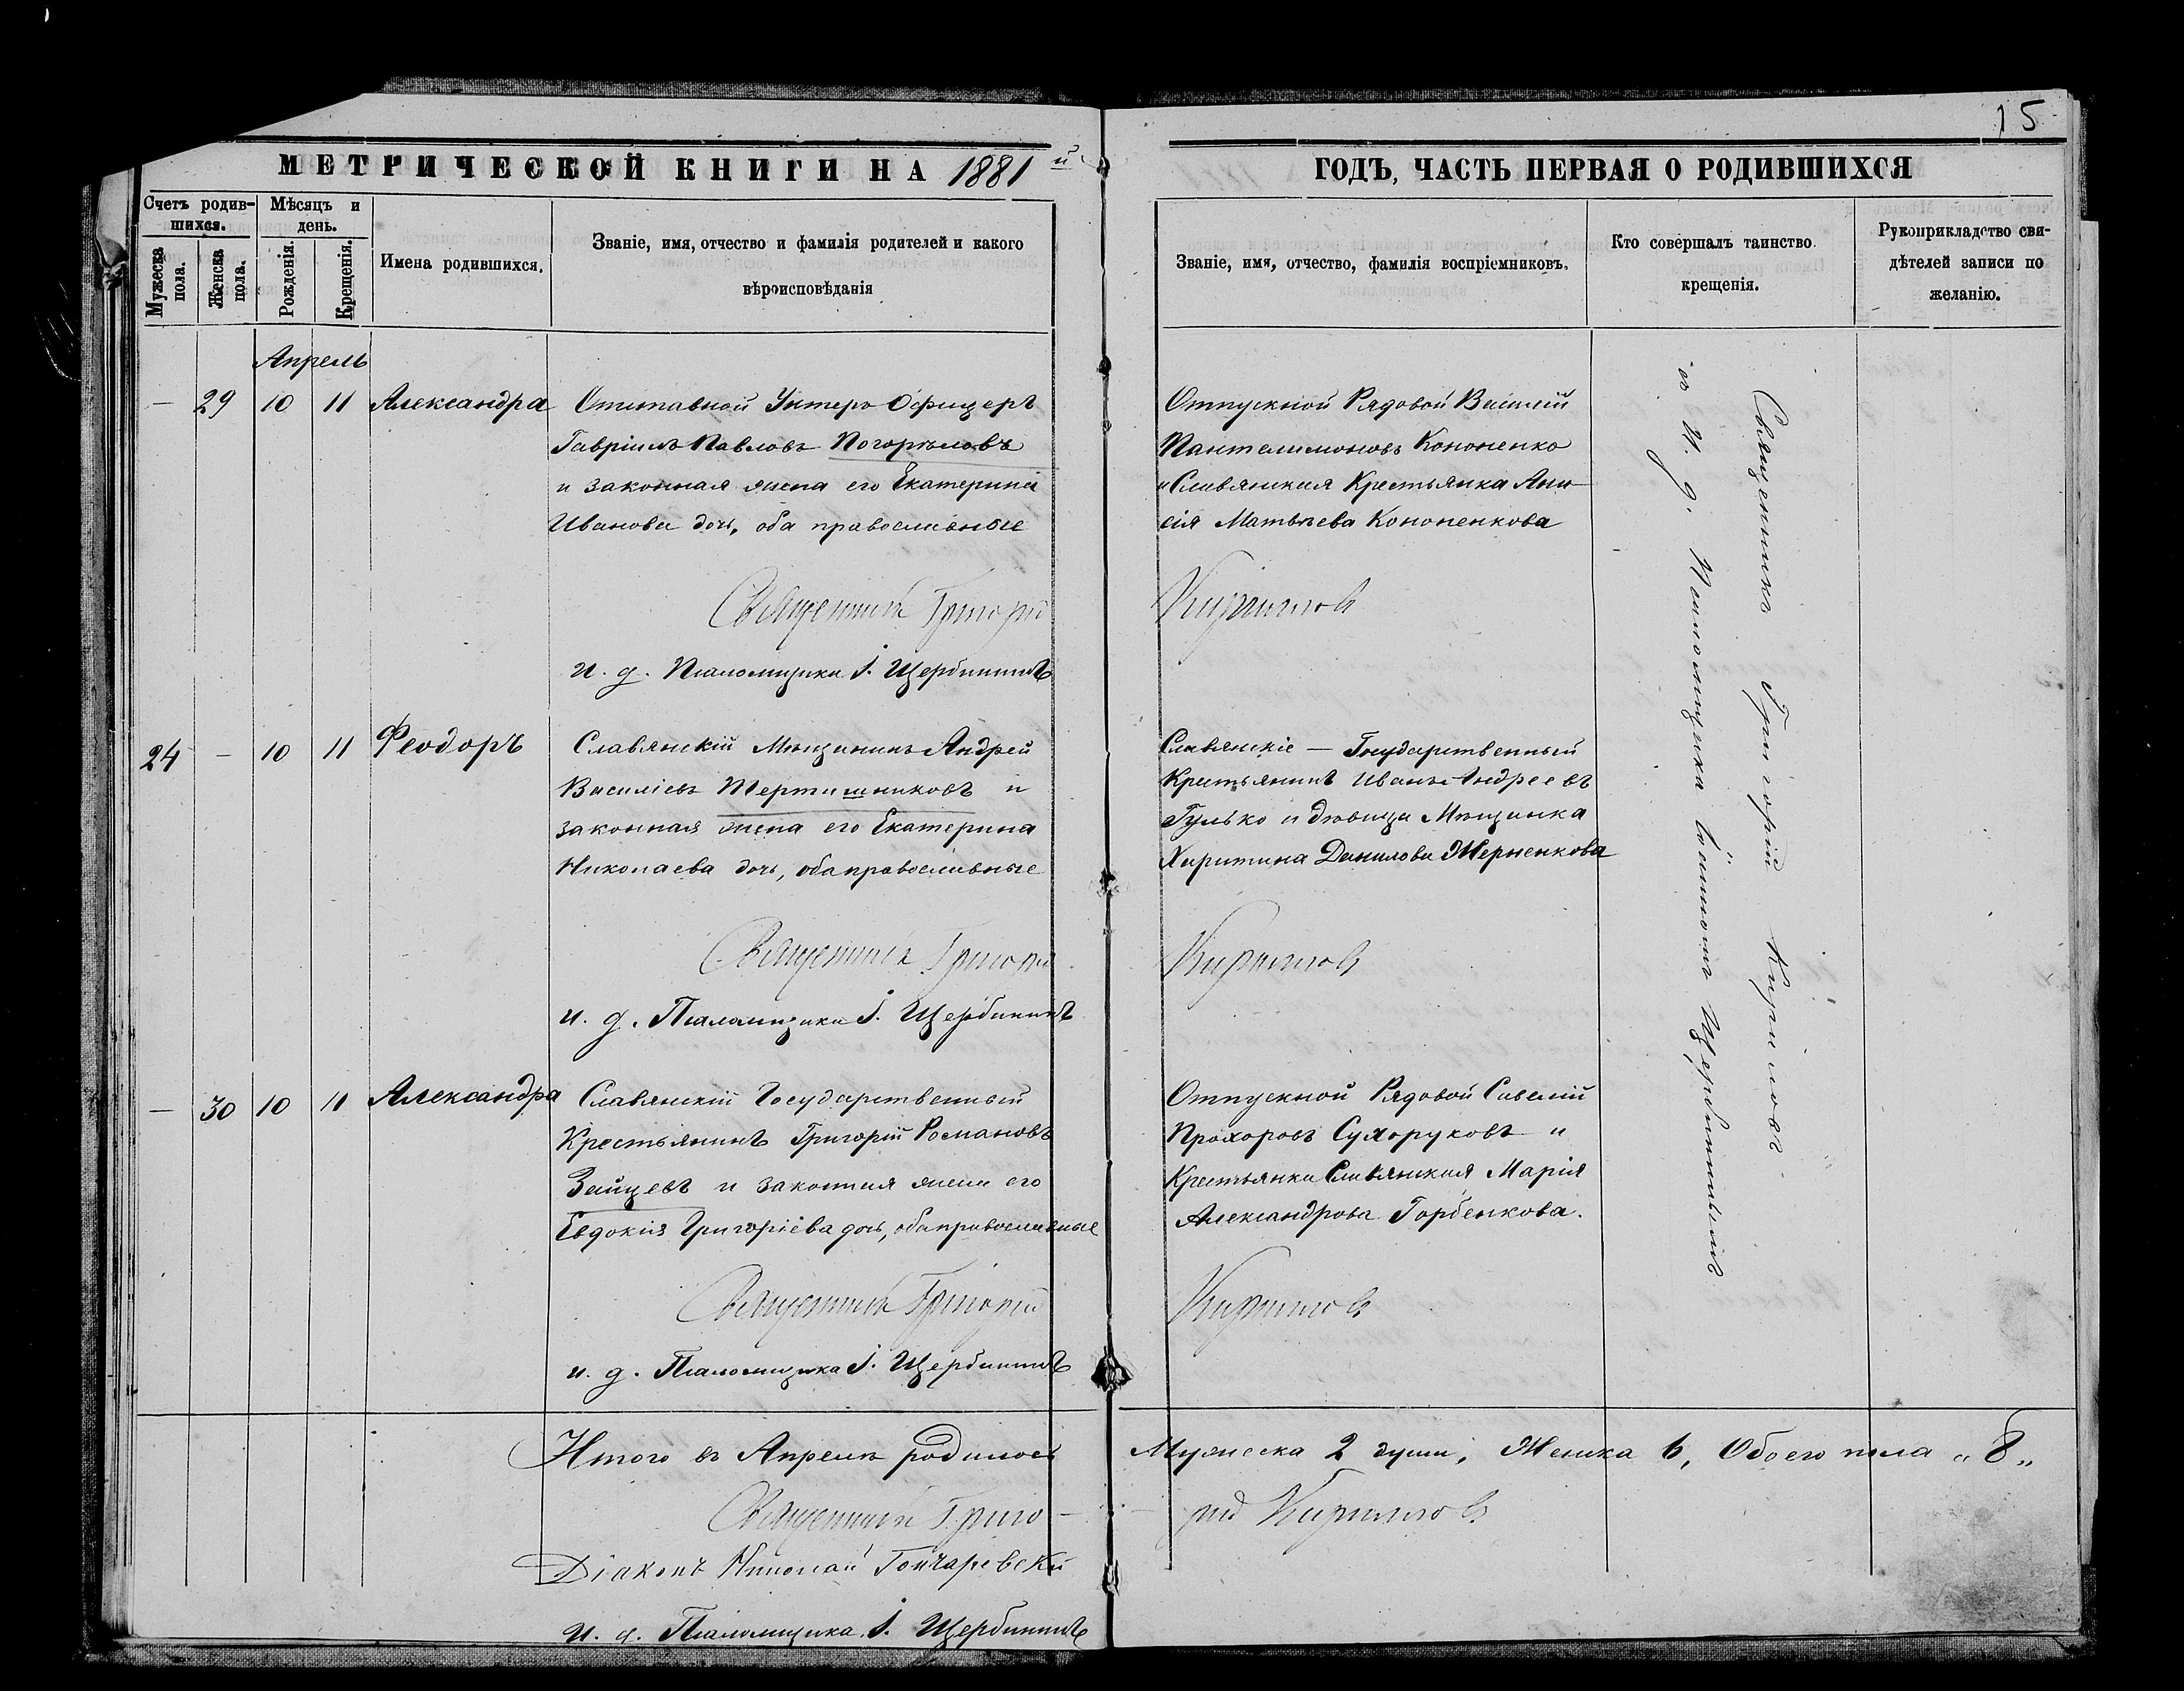 15
МЕТРИЧЕСКОЙ КНИГИ НА 1881й ГОДЪ, ЧАСТЬ ПЕРВАЯ О РОДИВШИХСЯ
Счетъ родив-
шихся.
Мужеска пола.
Женска пола.
Мѣсяцъ и
день.
Рожденія.
Крещенія.
Имена родившихся.
Званіе, имя, отчество и фамилія родителей и какого
вѣроисповѣданія
Званіе, имя, отчество, фамилія воспріемниковъ.
Кто совершалъ таинство
крещенія.
Рукоприкладство сви-
дѣтелей записи по
желанію.
Апрель
— 29 10 11 Александра
Отставной Унтеръ-Офицеръ
Гавріилъ Павловъ Погорѣловъ
и законная жена его Екатерина
Иванова дочь, оба православные
Священникъ Григорій
и. д. Псаломщика І. Щербининъ
Отпускной Рядовой Василій
Пантелимоновъ Кононенко
и Славянская Крестьянка Ани-
сія Матвѣева Кононенкова
Кириловъ
24 — 10 11 Феодоръ
Славянскій Мѣщанинъ Андрей
Василіевъ Тертишниковъ и
законная жена его Екатерина
Николаева дочь, оба православные
Священникъ Григорій
и. д. Псаломщика І. Щербининъ
Славянскіе — Государственный
Крестьянинъ Иванъ Андреевъ
Гулько и дѣвица Мѣщанка
Харитина Данилова Жерненкова
Кириловъ
— 30 10 11 Александра
Славянскій Государственный
Крестьянинъ Григорій Романовъ
Зайцевъ и законная жена его
Евдокія Григоріева дочь, оба православные
Священникъ Григорій
и. д. Псаломщика І. Щербининъ
Отпускной Рядовой Савелій
Прохоровъ Сухоруковъ и
Крестьянка Славянская Марія
Александрова Горбенкова.
Кириловъ
Священникъ Григорій Кириловъ
съ И. д. Псаломщика Щербининымъ
Итого въ Апрелѣ родилось Мужеска 2 души, Женска 6, Обоего пола „8„
Священникъ Григо- рій Кириловъ
Діаконъ Николай Гончаревскій
И. д. Псаломщика І. Щербининъ